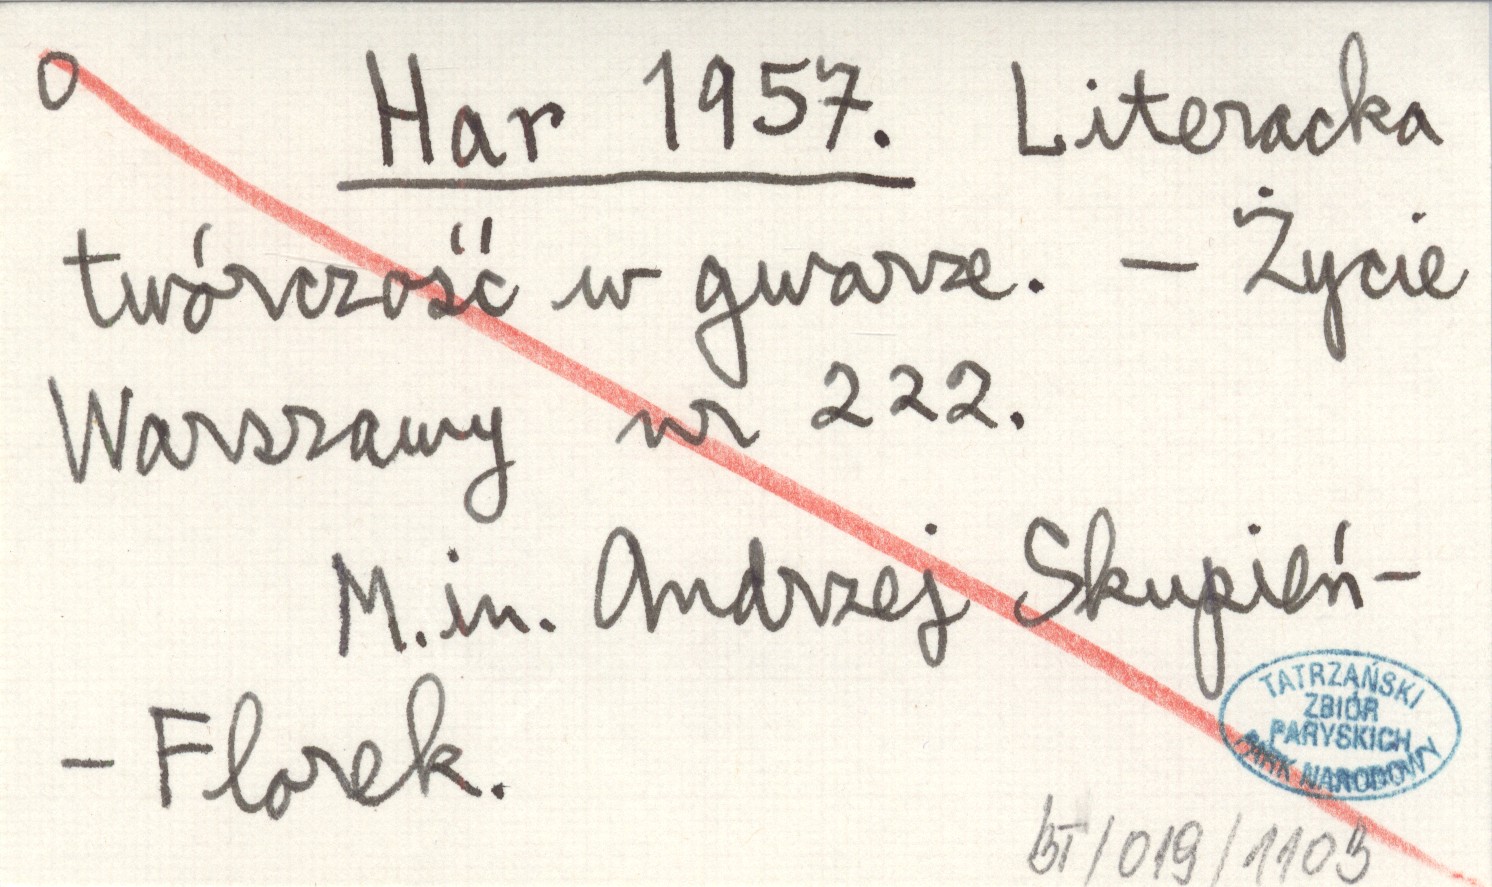 O Har 1957. Literacka
twórczość w gwarze. — Życie
Warszawy nr 222.
M.in. Andrzej Skupień-
- Florek.
TATRZAŃSKI
ZBIÓR
PARYSKICH
PARK NARODOWY
BT/019/1103